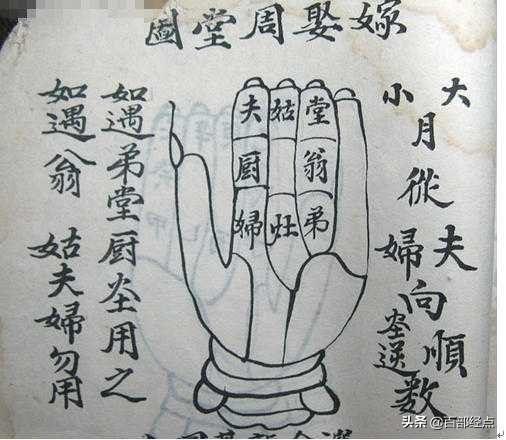 嫁娶周堂圖
大小月從夫婦向順灶逆數
夫 姑 堂
厨 翁
婦 灶 弟
如遇弟堂厨灶用之
如遇翁姑夫婦勿用
头条 @百部经点